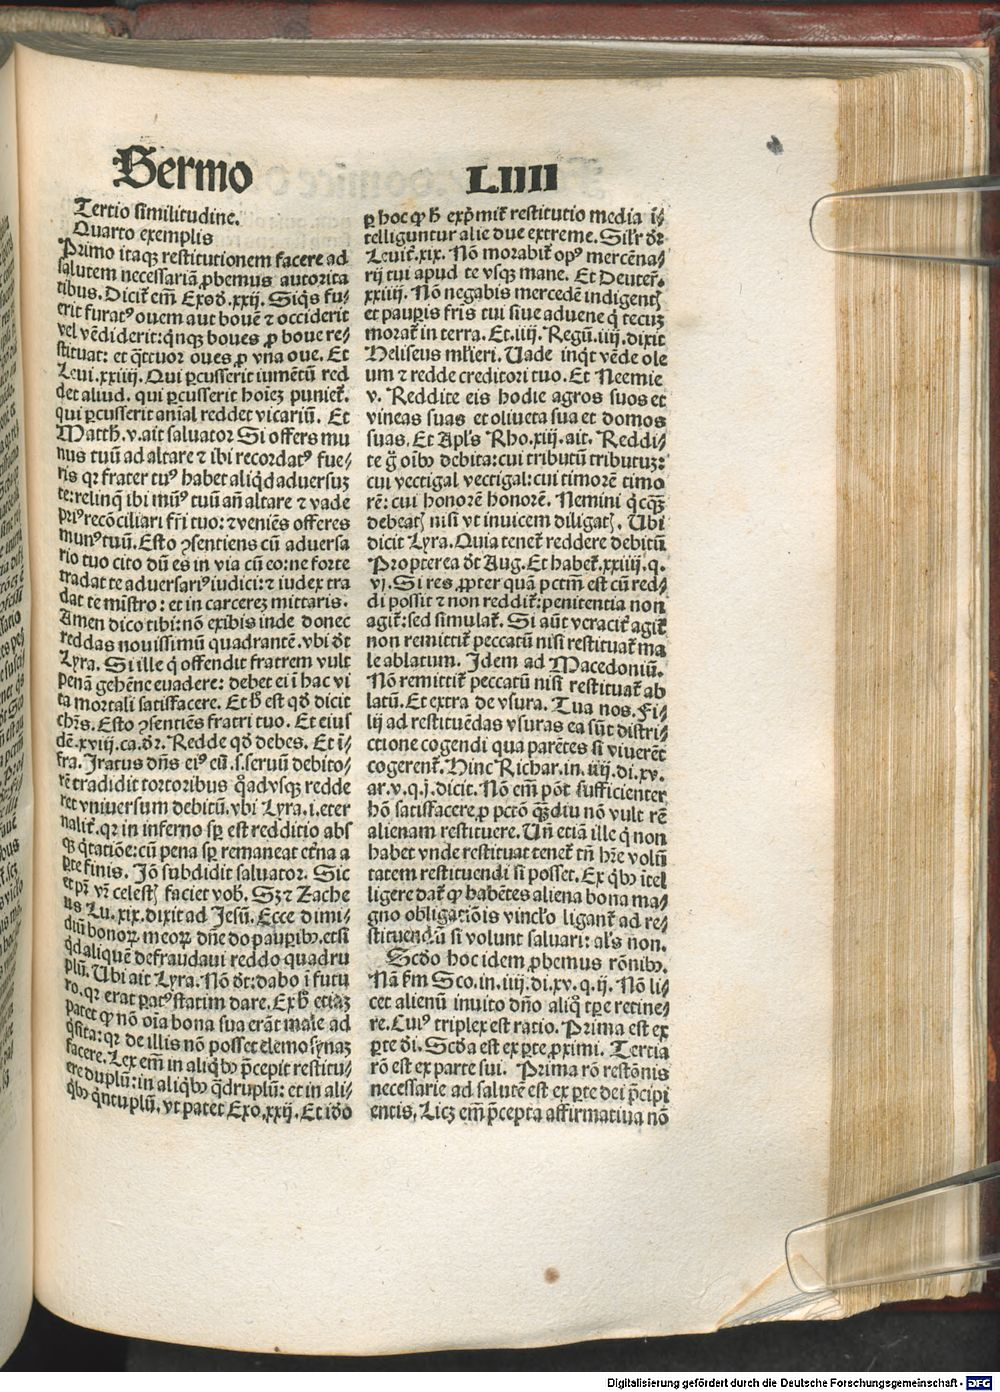 Sermo LIIII
Tertio similitudine.
Quarto exemplis
Primo itaqꝫ restitutionem facere ad
salutem necessariā ꝓbemus autorita
tibus. Dicit̄ em̄ Exod̄.xxij. Siq̄s fu⸗
erit furatꝰ ouem aut bouē ⁊ occiderit
vel vēdiderit: qͥnqꝫ boues ꝓ boue re⸗
stituat: et q̄ttuor oues ꝓ vna oue. Et
Leui.xxiiii. Qui ꝑcusserit iumētū red
det aliud. qui ꝑcusserit hoīeꝫ puniet̄.
qui ꝑcusserit aīal reddet vicariū. Et
Matth̄.v.ait saluator Si offers mu
nus tuū ad altare ⁊ ibi recordatꝰ fue⸗
ris qꝛ frater tuꝰ habet aliqͥd aduersuꝫ
te: relinq̄ ibi munꝰ tuū an̄ altare ⁊ vade
priꝰ recōciliari frī tuo: ⁊ veniēs offeres
munꝰ tuū. Esto ꝯsentiens cū aduersa
rio tuo cito dū es in via cū eo: ne forte
tradat te aduersariꝰ iudici: ⁊ iudex tra
dat te mīstro: et in carcereꝫ mittaris.
Amen dico tibi: nō exibis inde donec
reddas nouissimū quadrantē. vbi dt̄
Lyra. Si ille q̄ offendit fratrem vult
penā gehēne euadere: debet ei ī hac vi
ta mortali satisfacere. Et h̄ est qd̄ dicit
chr̄s. Esto ꝯsentiēs fratri tuo. Et eius
dē.xviij.ca.dr̄. Redde qd̄ debes. Et ī⸗
fra. Iratus dn̄s eiꝰ cū.s.seruū debito⸗
rē tradidit tortoribus q̄advsqꝫ redde
ret vniuersum debitū. vbi Lyra.i.eter
nalit̄. qꝛ in inferno sꝑ est redditio abs
qꝫ q̄tatiōe: cū pena sꝑ remaneat et̄na a
ꝑte finis. Iō subdidit saluator. Sic
et pr̄ vr̄ celestꝭ faciet vob̄. Sꝫ ⁊ Zache
us Lu.xix.dixit ad Jesū. Ecce dimi⸗
diū bonoꝝ meoꝝ dn̄e do pauꝑibꝰ. et si
qd̄ aliquē defraudaui reddo quadru
plū. Ubi ait Lyra. Nō dt̄: dabo ī futu
ro. qꝛ erat ꝑatꝰ statim dare. Ex h̄ etiaꝫ
patet ꝙ nō oīa bona sua erāt male ad
q̄sita: qꝛ de illis nō posset elemosynaꝫ
facere. Lex em̄ in aliqͥbꝰ p̄cepit restitu⸗
ere duplū: in aliqͥbꝰ q̄druplū: et in ali⸗
qͥbꝰ qͥntuplū. vt patet Exo.xxij. Et ido
ꝑ hoc ꝙ h̄ exp̄mit̄ restitutio media ī⸗
telliguntur alie due extreme. Silr̄ dr̄
Leuit̄.xix. Nō morabit̄ opꝰ mercēna⸗
rij tui apud te vsqꝫ mane. Et Deuter̄.
xxiiij. Nō negabis mercedē indigentꝭ
et pauꝑis fr̄is tui siue aduene q̄ tecuꝫ
morat̄ in terra. Et.iiij. Regū.iiij.dixit
Heliseus ml̄ieri. Uade inqͥt vēde ole
um ⁊ redde creditori tuo. Et Neemie
v. Reddite eis hodie agros suos et
vineas suas et oliueta sua et domos
suas. Et Apl̄s Rho.xiij.ait. Reddi⸗
te g̊ oībꝰ debita: cui tributū tributuꝫ:
cui vectigal vectigal: cui timorē timo
rē: cui honorē honorē. Nemini qͥcqꝫ
debeatꝭ nisi vt inuicem diligatꝭ. Ubi
dicit Lyra. Quia tenet̄ reddere debitū
Propterea dt̄ Aug. Et habet̄.xxiiij.q.
vj. Si res ꝓpter quā pctm̄ est cū red⸗
di possit ⁊ non reddit̄: penitentia non
agit̄: sed simulat̄. Si aūt veracit̄ agit̄
non remittit̄ peccatū nisi restituat̄ ma
le ablatum. Idem ad Macedoniū.
Nō remittit̄ peccatū nisi restituat̄ ab
latū. Et extra de vsura. Tua nos. Fi⸗
lij ad restituēdas vsuras ea sūt distri⸗
ctione cogendi qua parētes si viuerēt
cogerent̄. Hinc Richar.in.iiij.di.xv.
ar.v.q.j.dicit. Nō em̄ pōt sufficienter
hō satisfacere ꝓ pctō qͣꝫdiu nō vult rē
alienam restituere. Un̄ etiā ille q̄ non
habet vnde restituat tenet̄ tn̄ hr̄e volū
tatem restituendi si posset. Ex qͥbꝰ ītel
ligere dat̄ ꝙ habētes aliena bona ma⸗
gno obligatiōis vincl̄o ligant̄ ad re⸗
stituendū si volunt saluari: al̄s non.
Scd̄o hoc idem ꝓbemus rōnibꝰ.
Nā fm̄ Sco.in.iiij.di.xv.q.ij. Nō li⸗
cet alienū inuito dn̄o aliq̄ tꝑe retine⸗
re. Cuiꝰ triplex est ratio. Prima est ex
ꝑte dei. Scd̄a est ex ꝑte ꝓximi. Tertia
rō est ex parte sui. Prima rō restōnis
necessarie ad salutē est ex ꝑte dei p̄cipi
entis. Licꝫ em̄ p̄cepta affirmatiua nō
Digitalisierung gefördert durch die Deutsche Forschungsgemeinschaft - DFG